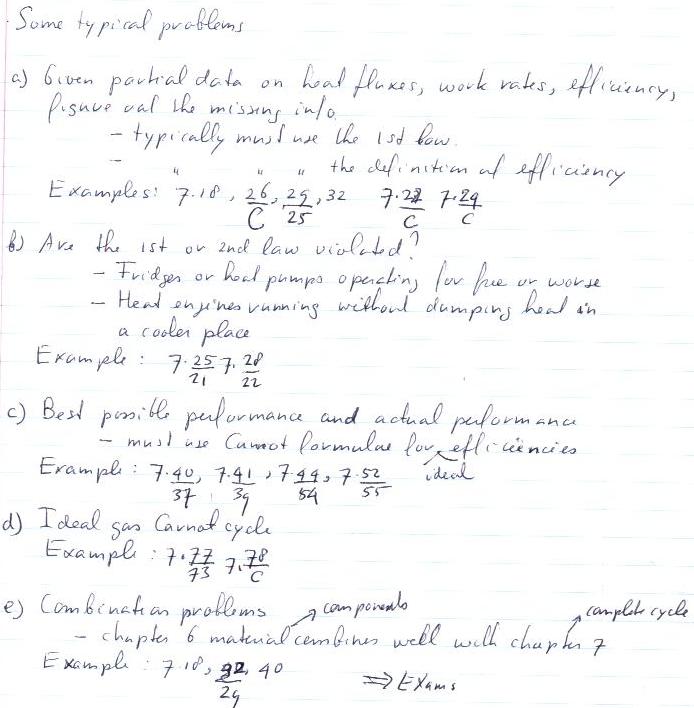 Some typical problems
a) Given partial data on heat fluxes, work rates, efficiency,
figure out the missing info.
- typically must use the 1st law.
- " " " the definition of efficiency
Examples: 7.18, 26/C, 29/25, 32 7.27/C 7.29/C
b) Are the 1st or 2nd law violated?
- Fridges or heat pumps operating for free or worse
- Heat engines running without dumping heat in
a cooler place
Example : 7.25/21 7.28/22
c) Best possible performance and actual performance
- must use Carnot formulae for ideal efficiencies
Example : 7.40/37, 7.41/39, 7.44/54, 7.52/55
d) Ideal gas Carnot cycle
Example : 7.77/73 7.78/C
e) Combination problems components complete cycle
- chapter 6 material combines well with chapter 7
Example : 7.18, 32/29, 40 ⇒ Exams